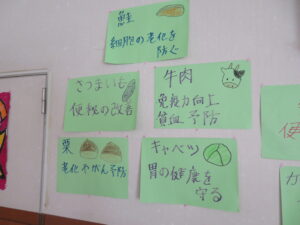 鮭
細胞の老化を
防ぐ
さつまいも
便秘の改善
牛肉
免疫力向上
貧血予防
栗
老化やがん予防
キャベツ
胃の健康を
守る
か